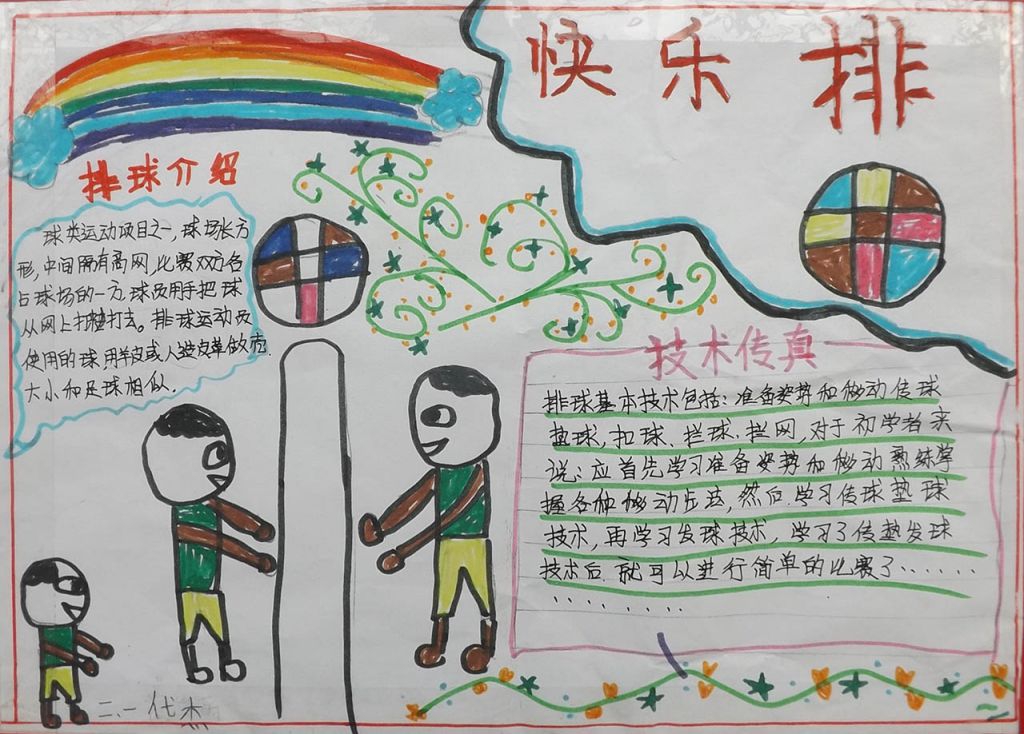 快乐排
排球介绍
球类运动项目之一,球场长方
形,中间隔有高网,比赛双方各
占球场的一方,球员用手把球
从网上打来打去。排球运动员
使用的球,用羊皮或人造皮革做成.
大小和足球相似.
技术传真
排球基本技术包括:准备姿势和移动传球
垫球,扣球、拦球、拦网,对于初学者来
说:应首先学习准备姿势和移动熟练掌
握各种移动步法,然后.学习传球垫球
技术,再学习发球技术,学习了传垫发球
技术后.就可以进行简单的比赛了......
......
二.一代杰